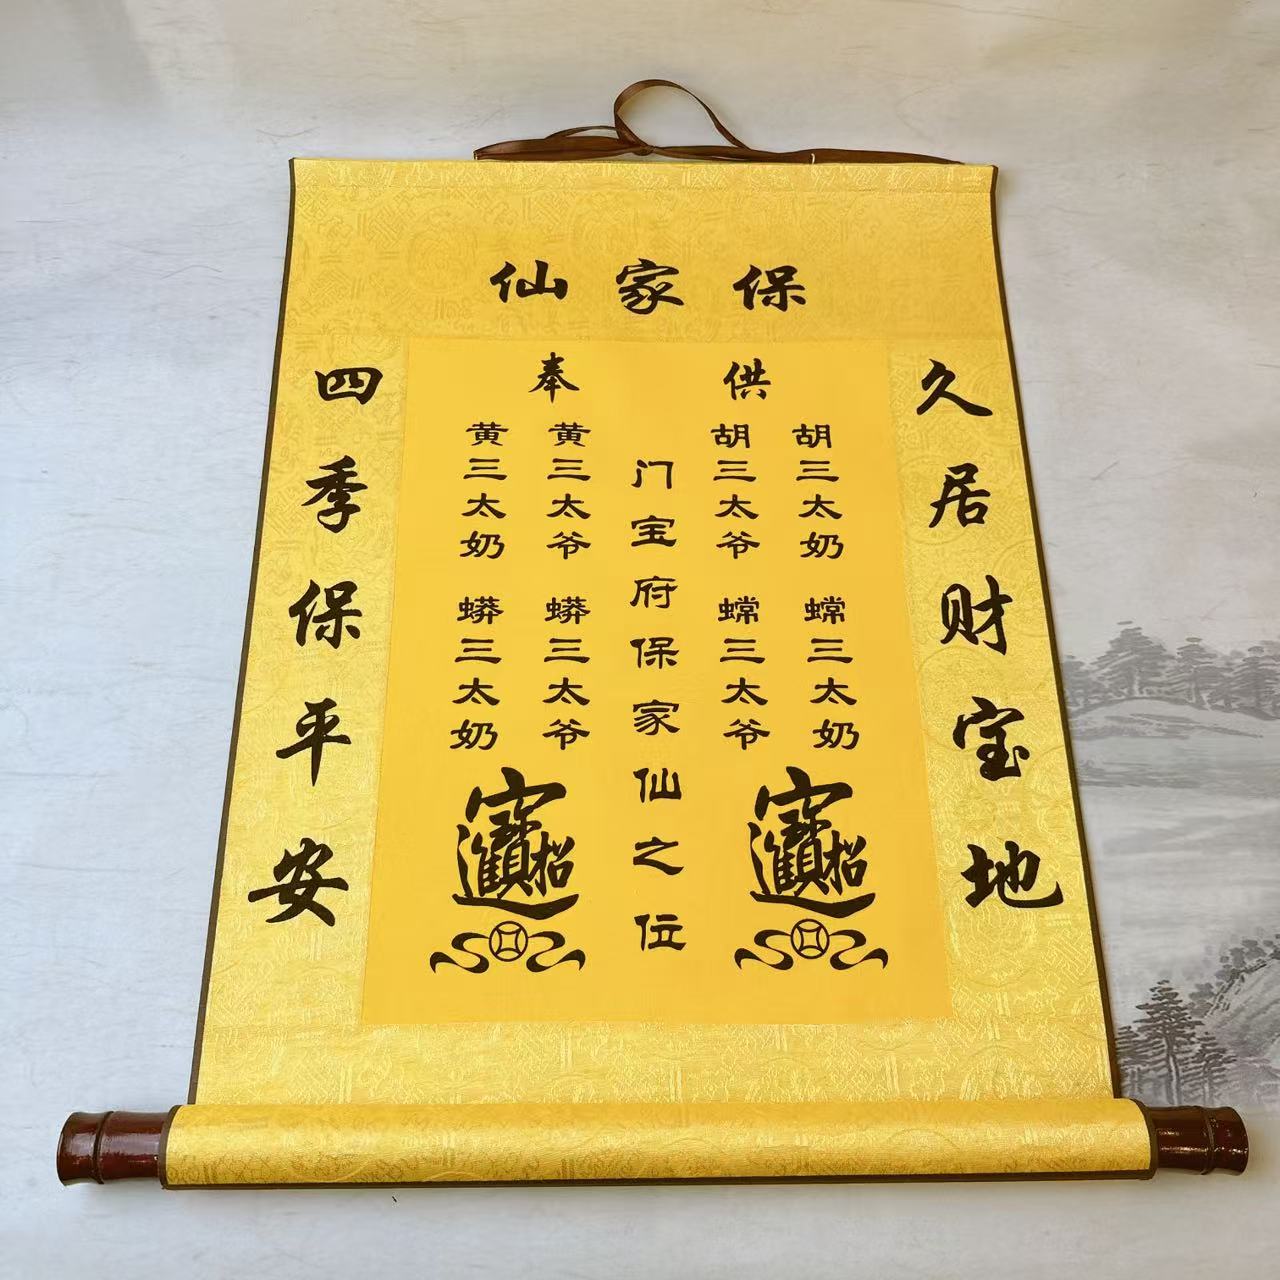 保家仙
久居财宝地
四季保平安
供奉
胡三太奶
胡三太爷
黄三太爷
黄三太奶
门宝府保家仙之位
蟐三太奶
蟐三太爷
蟒三太爷
蟒三太奶
招财进宝
招财进宝